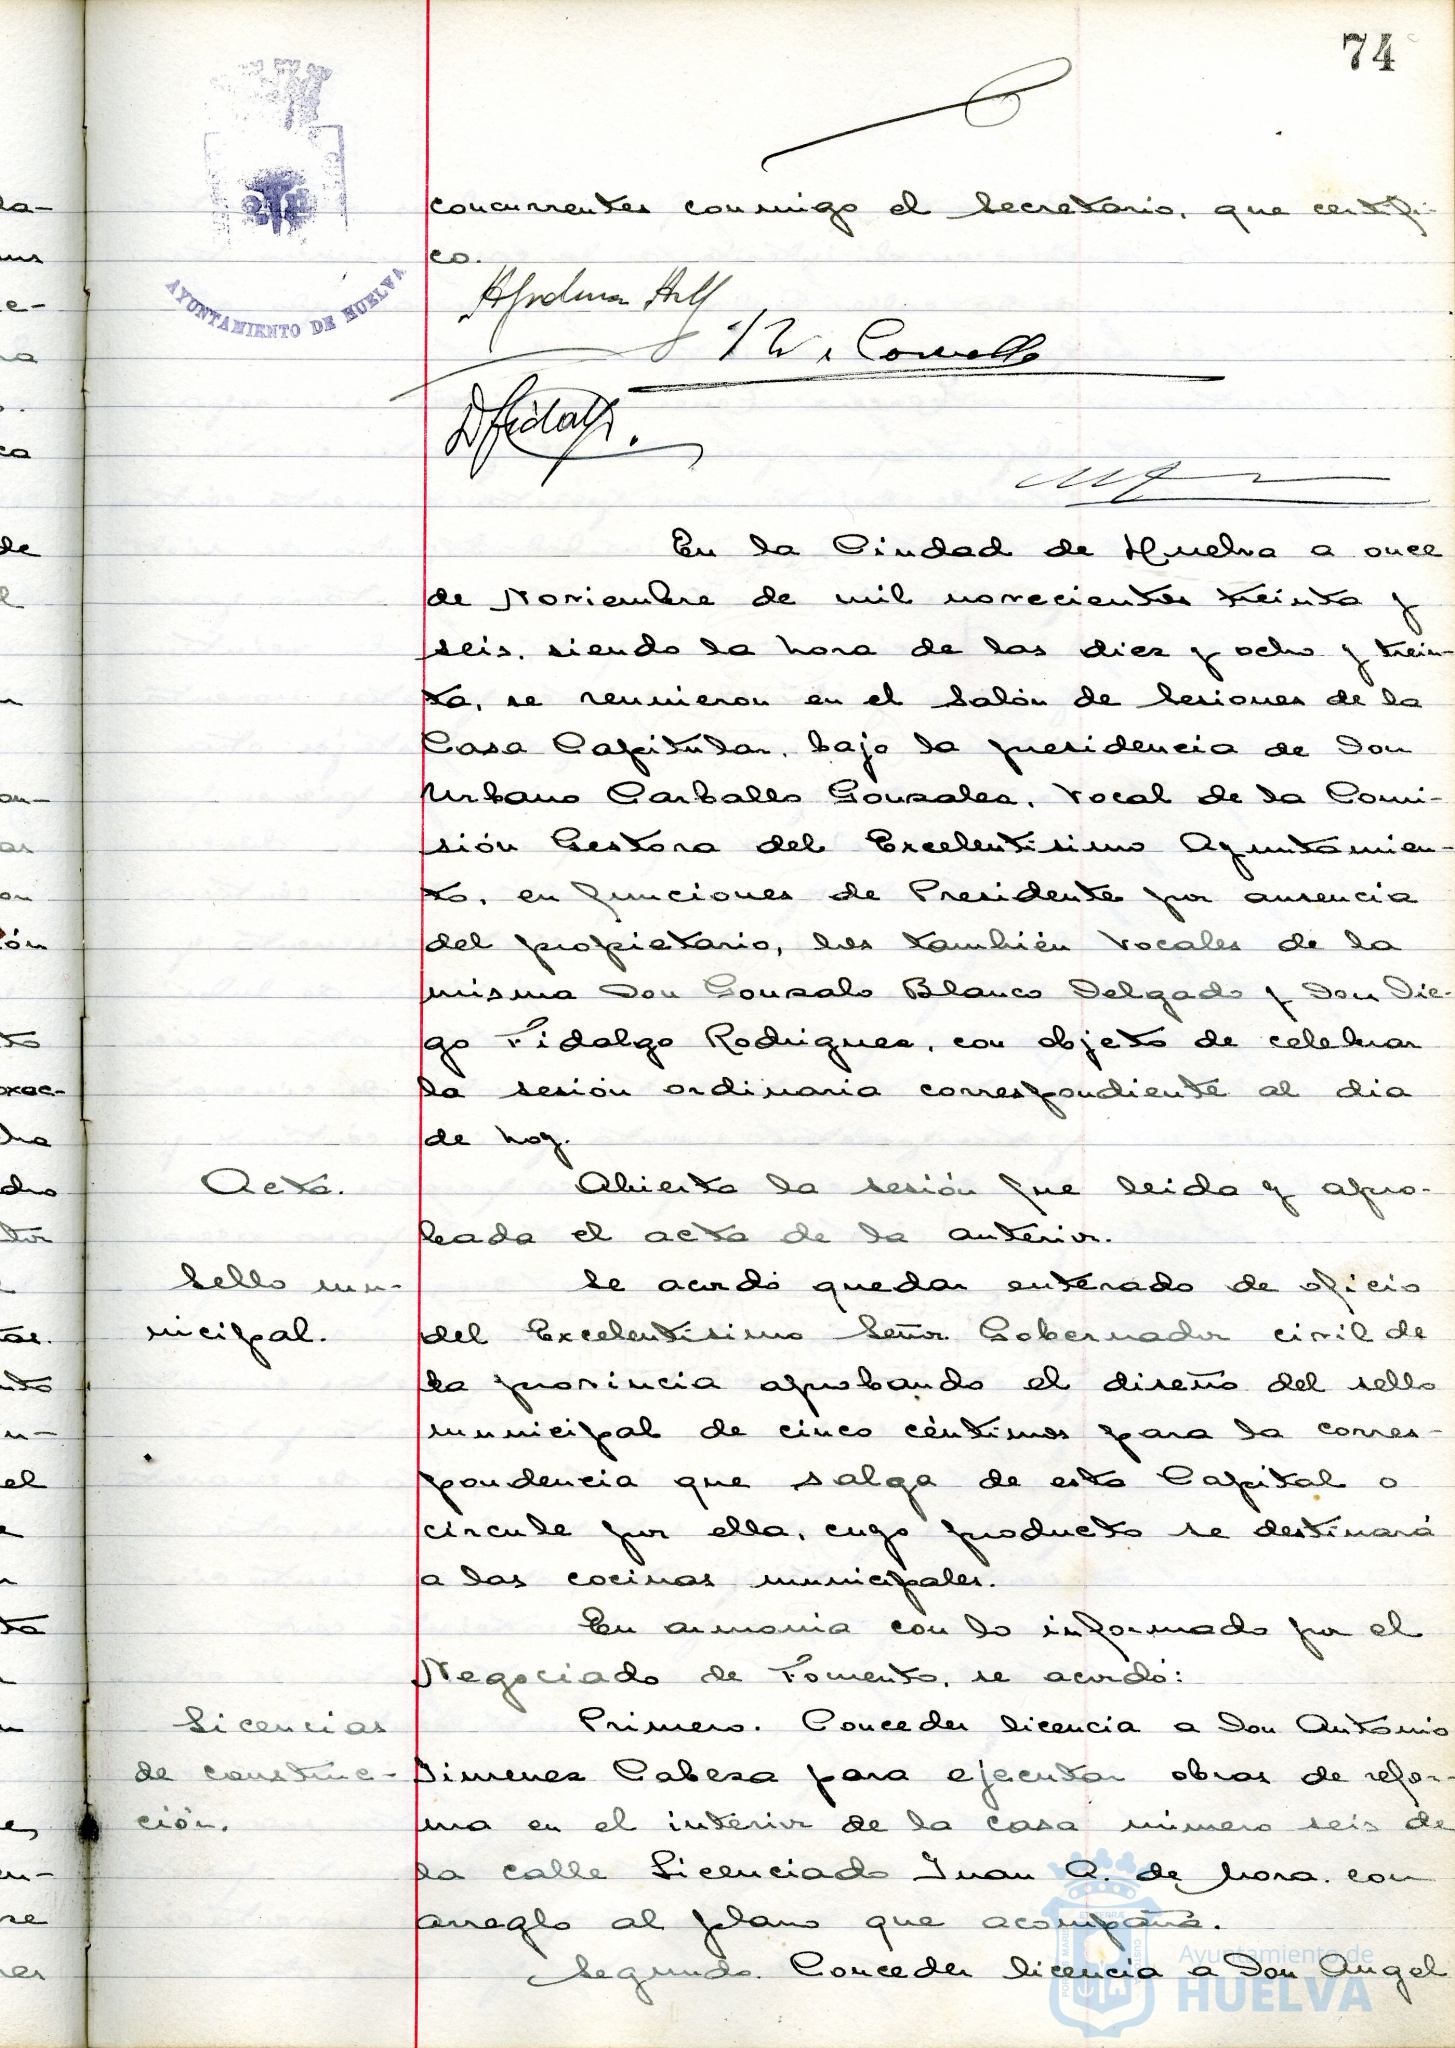 74
AYUNTAMIENTO DE HUELVA
concurrentes conmigo el Secretario, que certifi-
co.
D Fidalgo.
En la Ciudad de Huelva a once
de Noviembre de mil novecientos treinta y
seis, siendo la hora de las diez y ocho y trein-
ta, se reunieron en el Salón de Sesiones de la
Casa Capitular, bajo la presidencia de Don
Urbano Carballo Gonzalez, Vocal de la Comi-
sión Gestora del Excelentisimo Ayuntamien-
to, en funciones de Presidente por ausencia
del propietario, los también Vocales de la
misma Don Gonzalo Blanco Delgado y Don Die-
go Fidalgo Rodriguez, con objeto de celebrar
la sesión ordinaria correspondiente al dia
de hoy.
Acta.
Abierta la sesión fue leida y apro-
bada el acta de la anterior.
Sello mu-
nicipal.
Se acordó quedar enterado de oficio
del Excelentisimo Señor Gobernador civil de
la provincia aprobando el diseño del sello
municipal de cinco céntimos para la corres-
pondencia que salga de esta Capital o
circule por ella, cuyo producto se destinará
a las cocinas municipales.
En armonia con lo informado por el
Negociado de Fomento, se acordó:
Licencias
de construc-
ción.
Primero. Conceder licencia a Don Antonio
Jimenez Cabeza para ejecutar obras de refor-
ma en el interior de la casa número seis de
la calle Licenciado Juan A. de Mora, con
arreglo al plano que acompaña.
Segundo. Conceder licencia a Don Angel
Ayuntamiento de
HUELVA